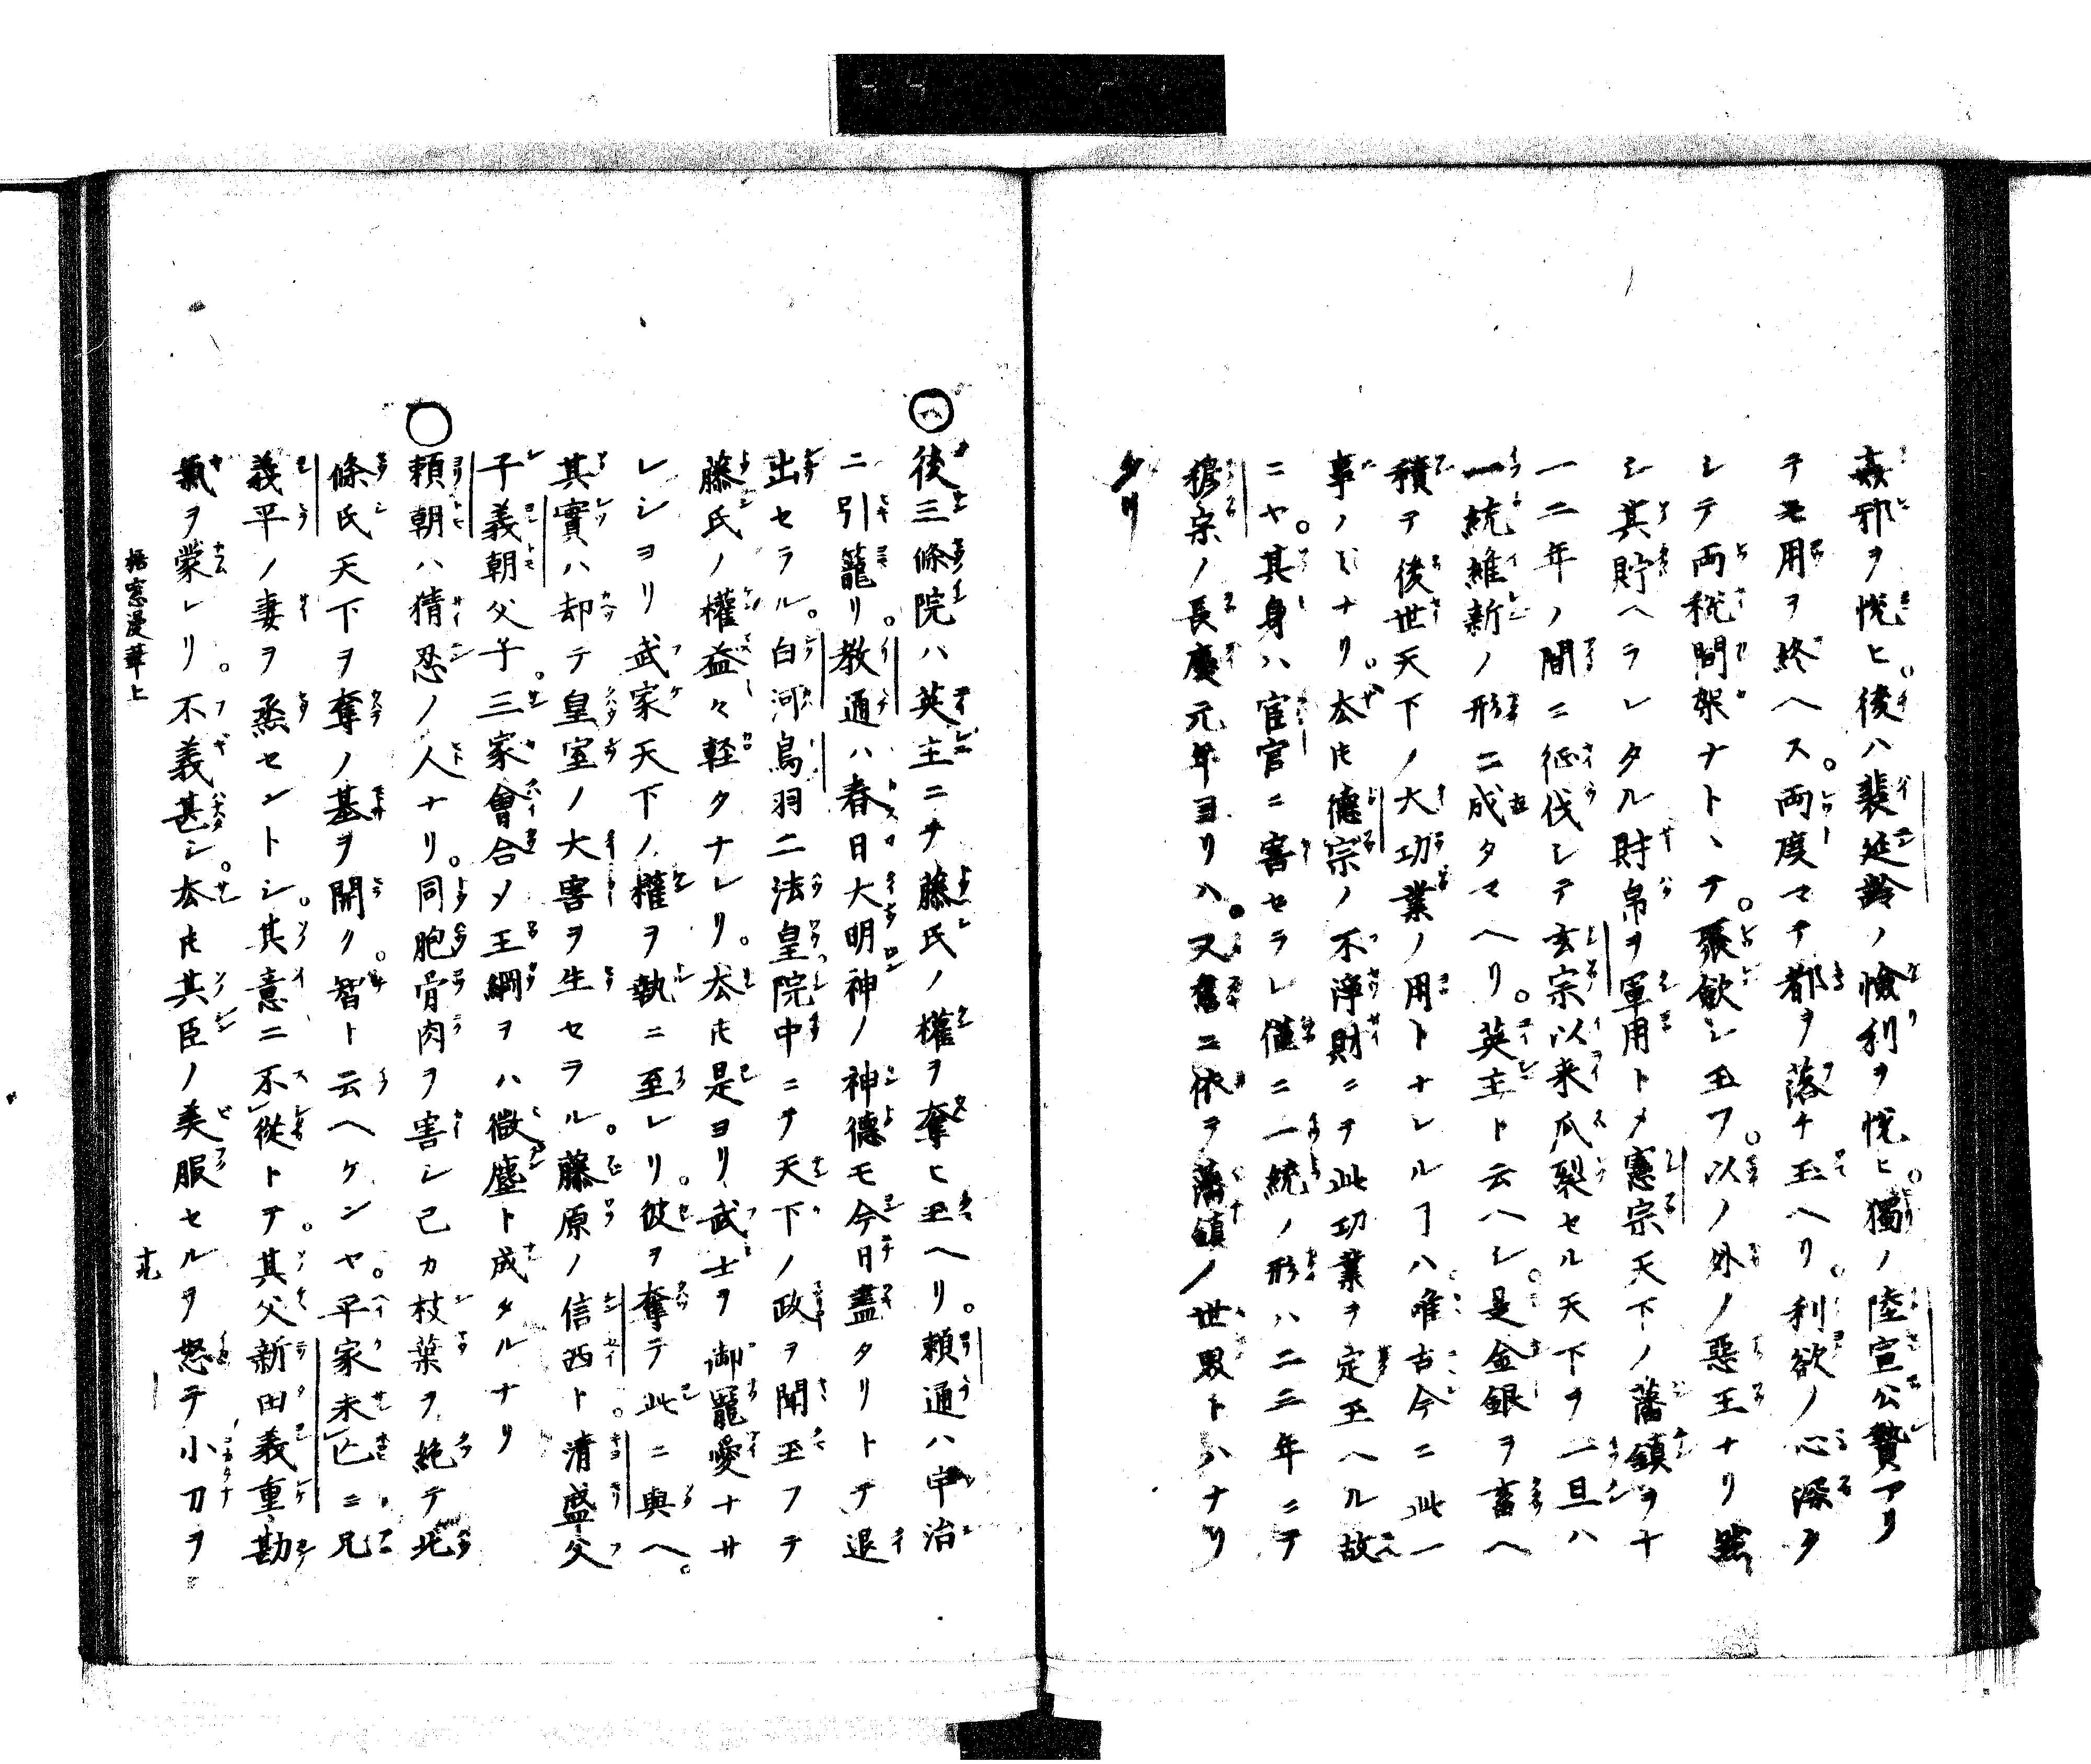 姦邪ヲ悦ヒ。後ハ裴延齡ノ憸利ヲ悦ヒ。獨ノ陸宣公贄アリ
テモ用ヲ終ヘス。両度マテ都ヲ落チ玉ヘリ。利欲ノ心深ク
シテ両税間架ナト、テ。張歛シ玉フ。以ノ外ノ惡王ナリ然
シ其貯ヘラレタル財帛ヲ軍用トメ憲宗天下ノ藩鎮ヲ十
一二年ノ間ニ征伐シテ玄宗以来瓜裂セル天下ヲ一旦ハ
一統維新ノ形ニ成タマヘリ。英主ト云ヘシ。是金銀ヲ畜ヘ
積テ後世天下ノ大功業ノ用トナレルヿハ唯古今ニ此一
事ノミナリ。厺𪜈德宗ノ不淨財ニヲ此功業ヲ定玉ヘル故
ニヤ。其身ハ宦官ニ害セラレ僅ニ一統ノ形ハ二三年ニテ
穆宗ノ長慶元年ヨリハ。又舊ニ依ヲ藩鎮ノ世界トハナリ
タリ
後三條院ハ英主ニテ藤氏ノ權ヲ奪ヒ玉ヘリ。頼通ハ宇治
ニ引籠リ。教通ハ春日大明神ノ神德モ今日盡タリトテ退
出セラル。白河鳥羽二法皇院中ニテ天下ノ政ヲ聞玉フテ
藤氏ノ權益々軽クナレリ。厺𪜈是ヨリ武士ヲ御寵愛ナサ
レシヨリ武家天下ノ權ヲ執ニ至レリ。彼ヲ奪テ此ニ與ヘ。
其實ハ却テ皇室ノ大害ヲ生セラル。藤原ノ信西ト清盛父
子義朝父子。三家會合メ王綱ヲハ微塵ト成タルナリ
頼朝ハ猜忍ノ人ナリ。同胞骨肉ヲ害シ己カ枝葉ヲ絶テ北
條氏天下ヲ奪ノ基ヲ開ク。智ト云ヘケンヤ。平家未亡ニ兄
義平ノ妻ヲ烝セントシ。其意ニ不從トテ其父新田義重勘
氣ヲ蒙レリ。不義甚シ。厺𪜈其臣ノ美服セルヲ怒テ小刀ヲ
梧窓漫筆上
十九